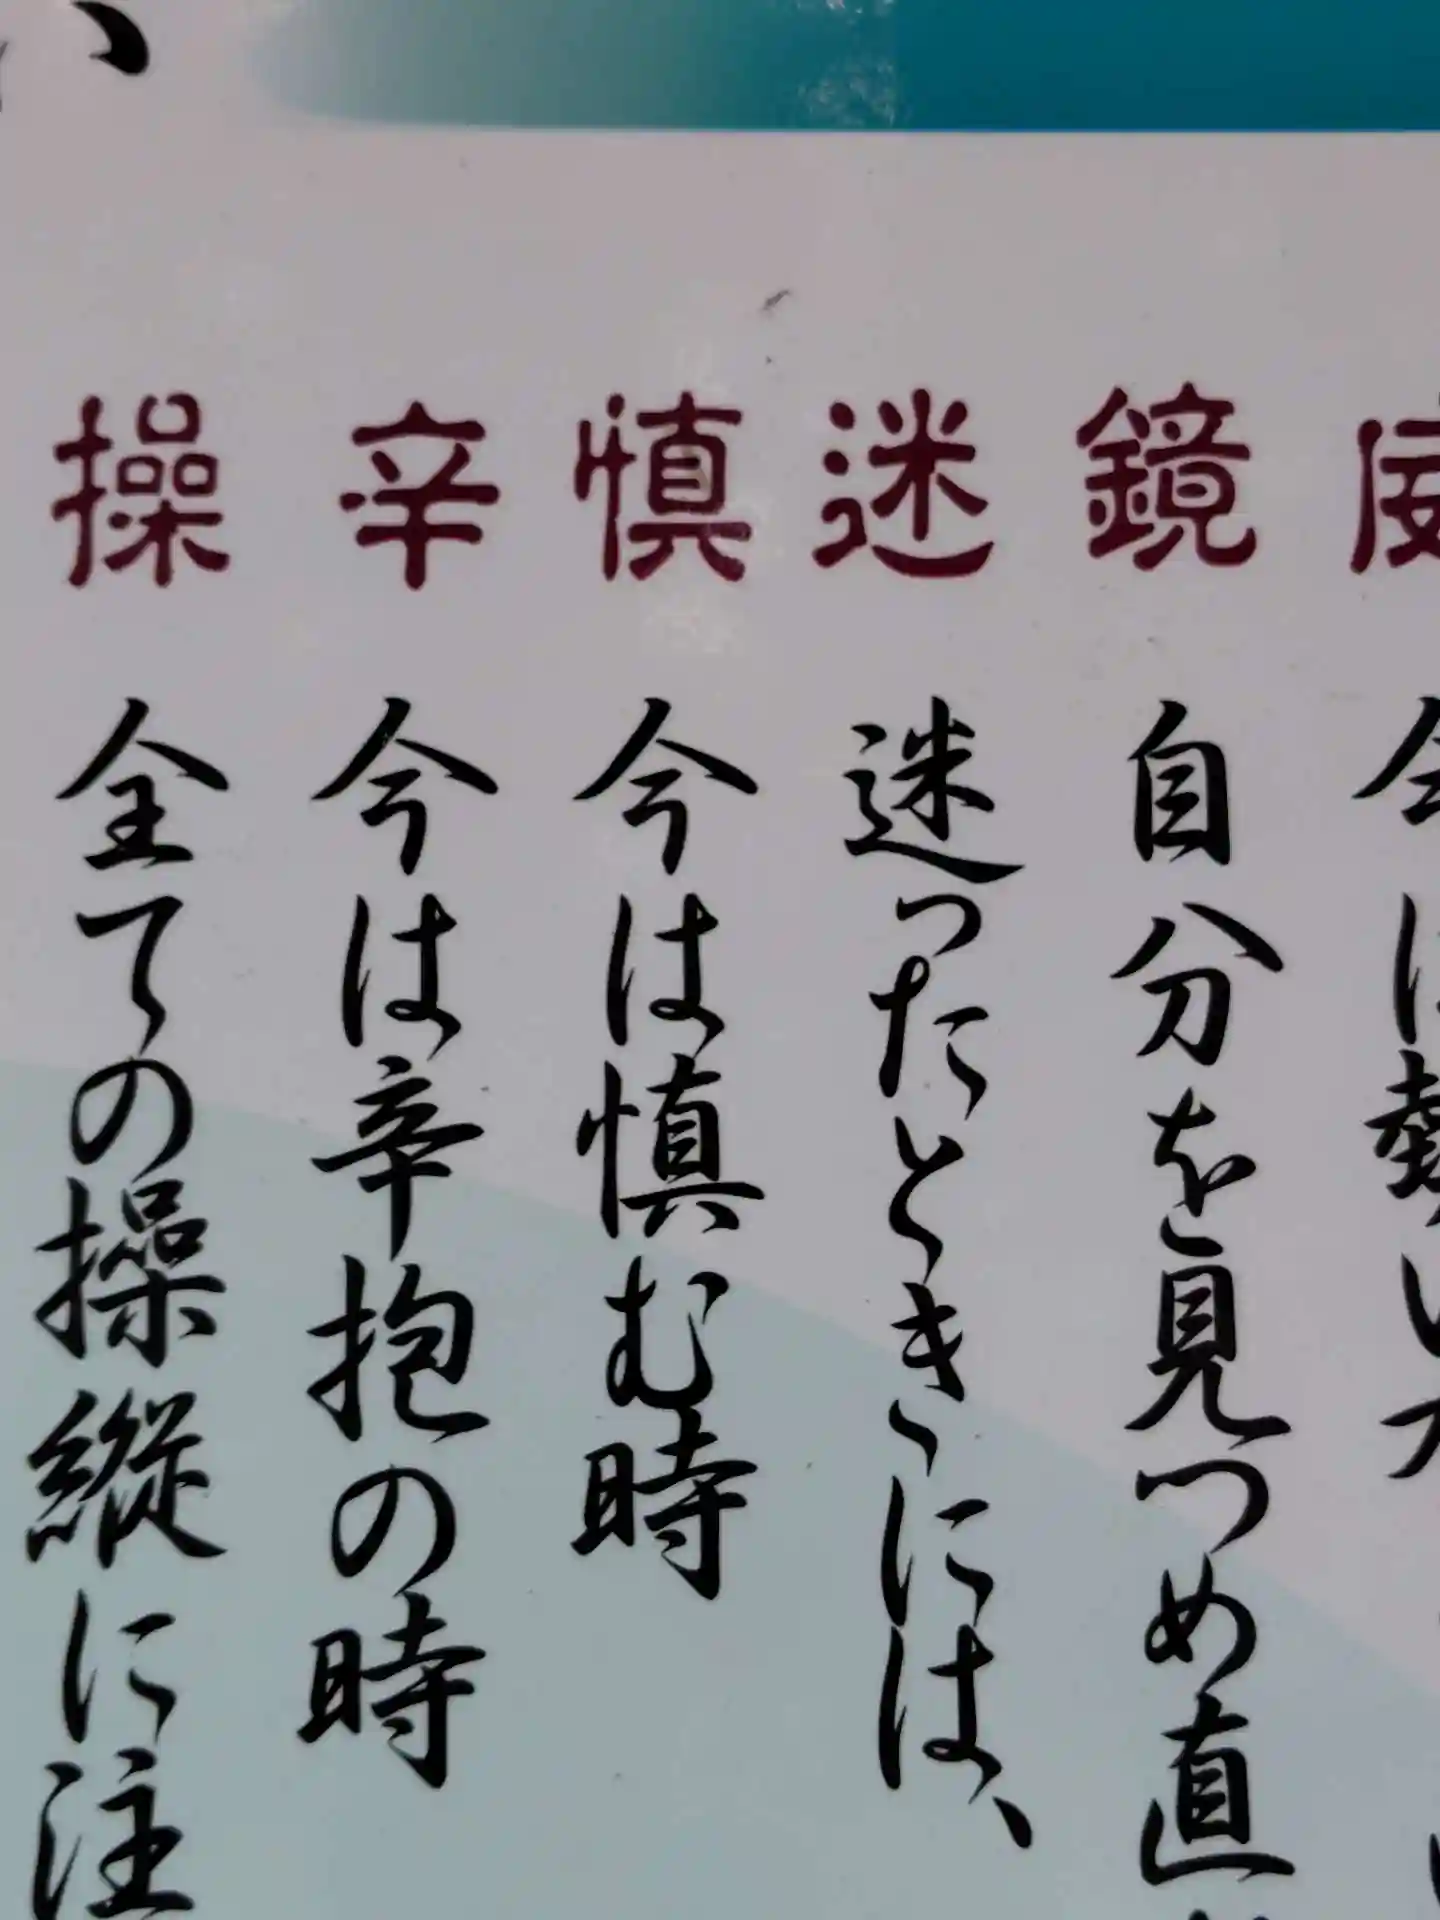 鏡 自分を見つめ直
迷 迷ったときには、
慎 今は慎む時
辛 今は辛抱の時
操 全ての操縦に注